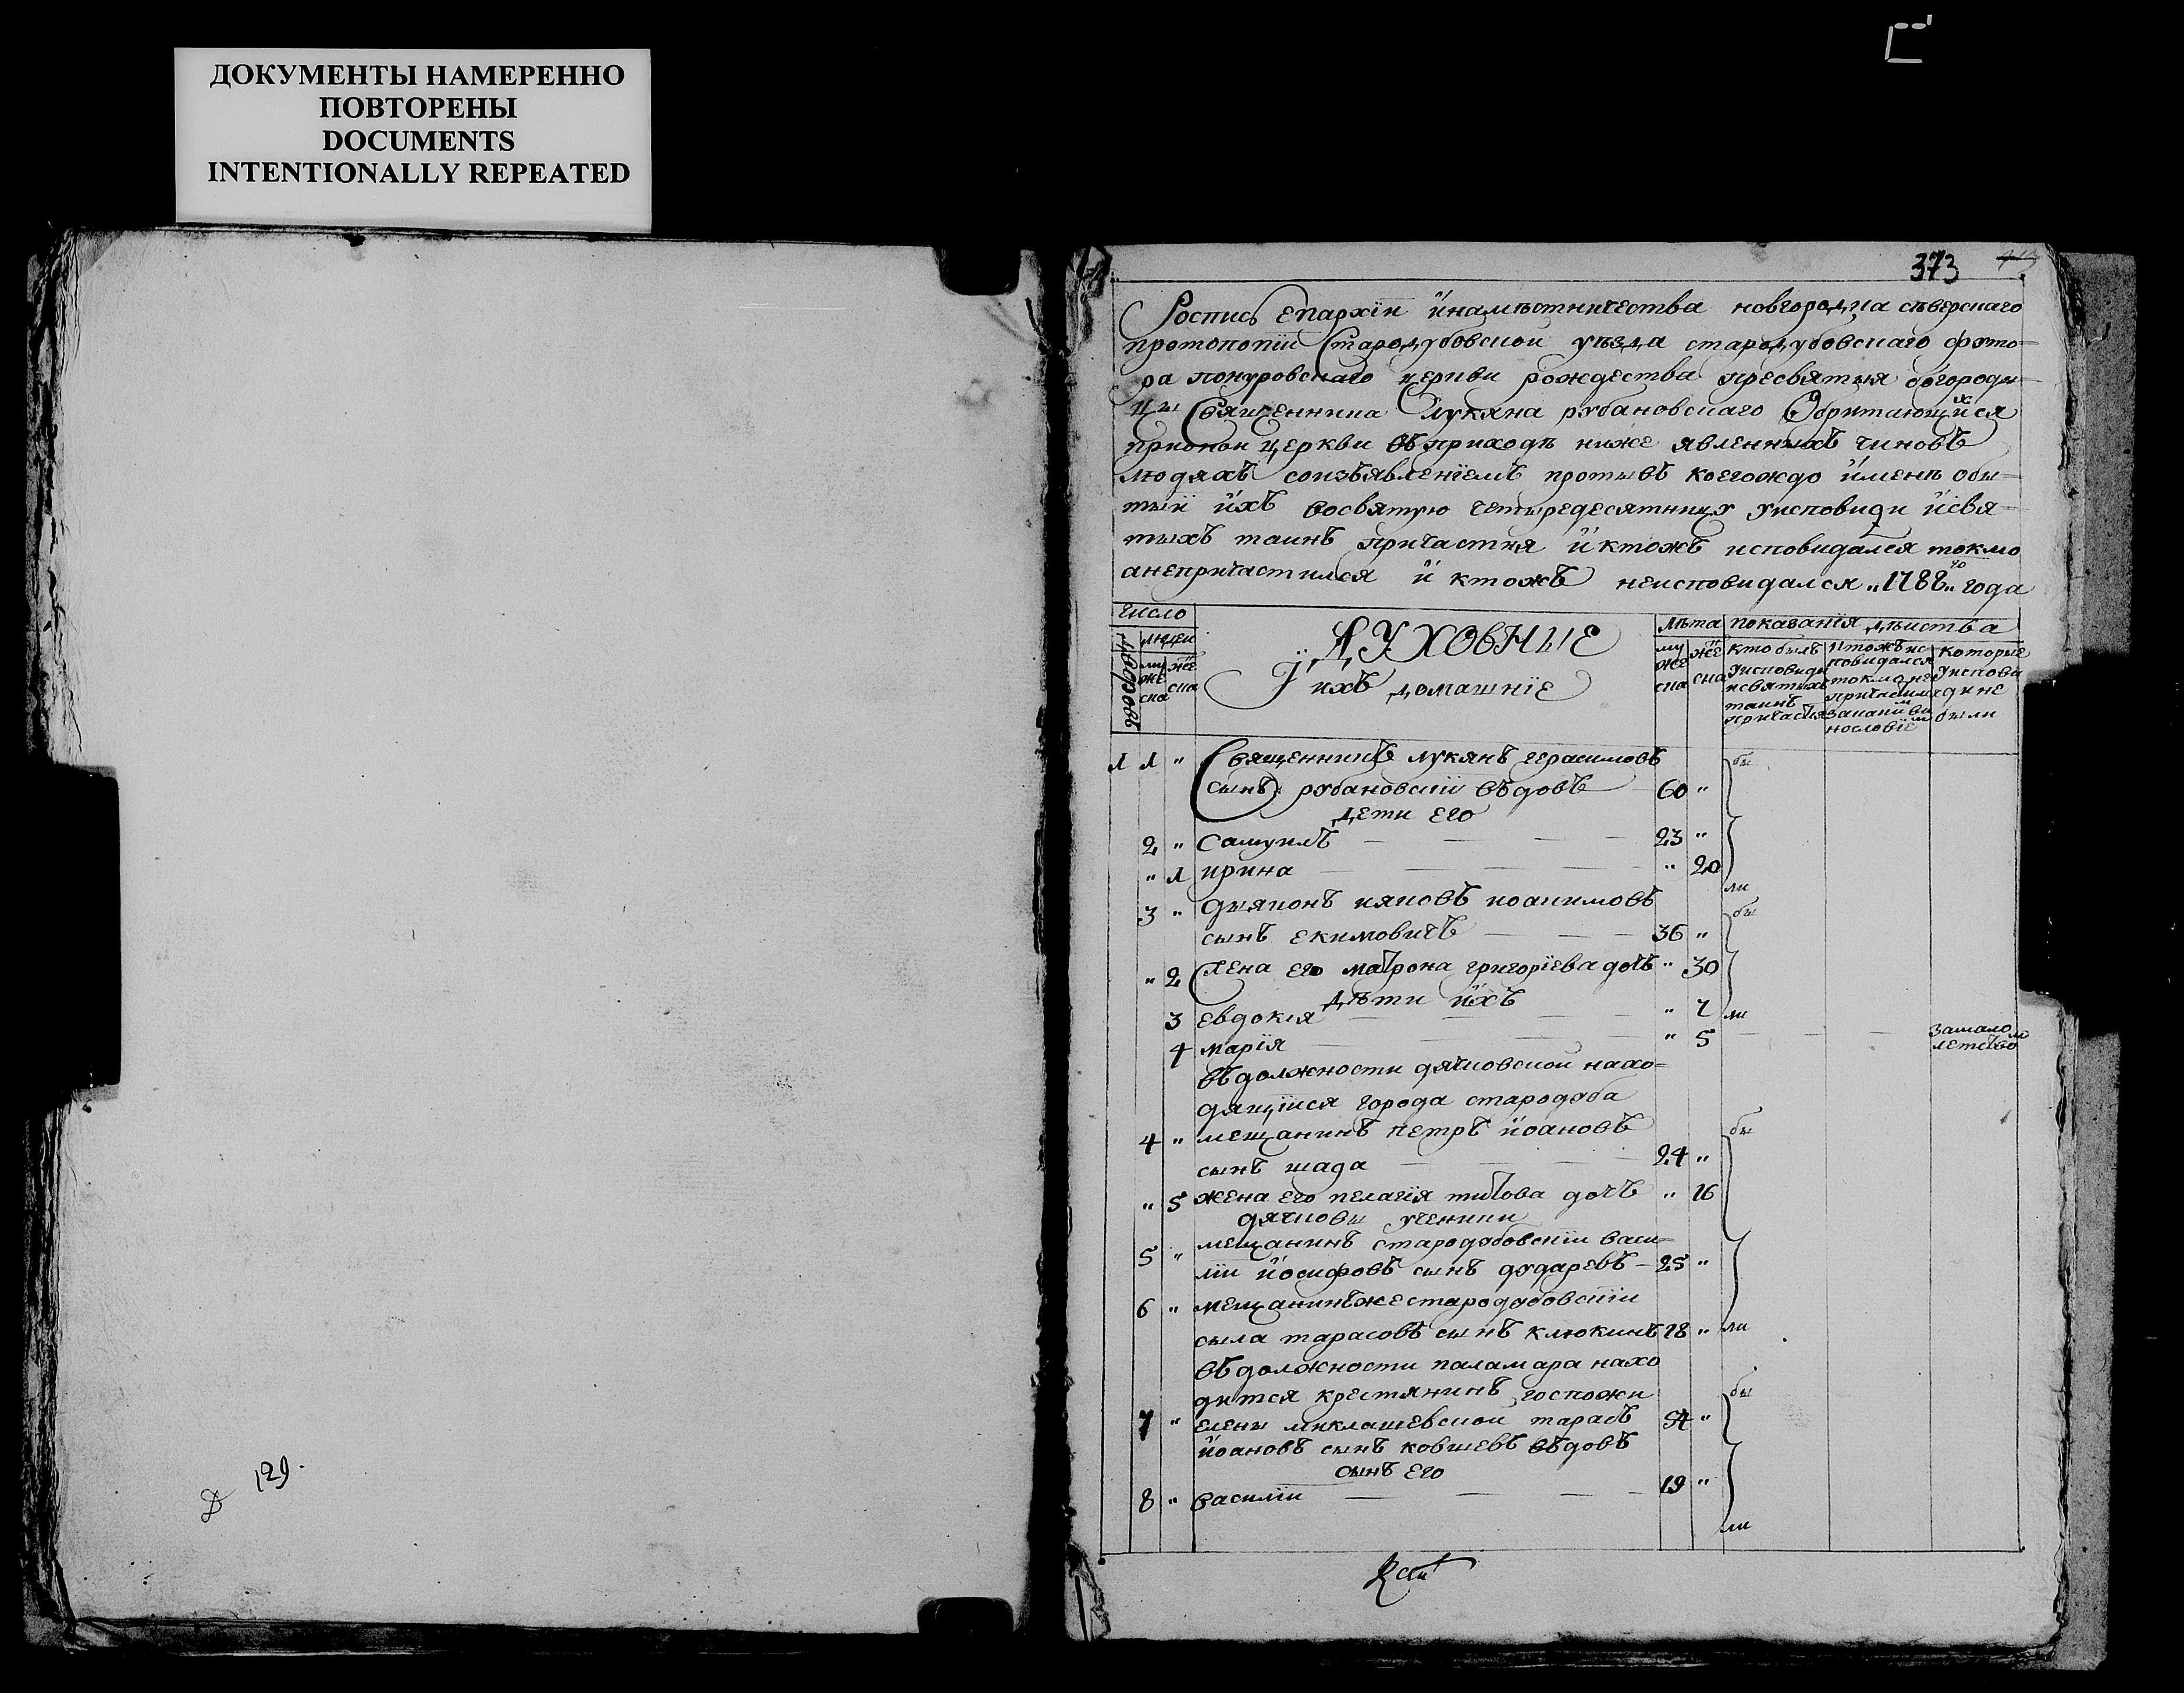 ДОКУМЕНТЫ НАМЕРЕННО
ПОВТОРЕНЫ
DOCUMENTS
INTENTIONALLY REPEATED
373
Роспись епархїи и намѣстничества новгородка сѣверскаго
протопопїи Стародубовской уѣзда стародубовскаго футо-
ра понуровскаго церкви рождества пресвятыя богороди-
цы Священника Лукяна рубановскаго Обритающихся
при оной церкви въ приходѣ ниже явленныхъ чиновъ
людяхъ со изъявленїемъ противъ коегождо имени обы-
тыи ихъ во святую четыредесятницу у исповиди и свя-
тыхъ таинъ причастия и ктожъ исповидался токмо
а не причастился и ктожъ неисповидался „1788„ го года
число
людеи
дворовъ
муже ска
женска
ДУХОВНЫЕ
И ихъ домашнїе
лѣта
муже ска
женска
показанїя дѣиства
кто былъ у исповиди и святыхъ таинъ причастя
ктожъ исповидался токмо не причастился за каким винословїем
которые у исповиди не были
1 1 „ Священникъ лукянъ герасимовъ бы
сынъ рубановскїи вѣдовъ 60 „
дети его
2 „ Самуилъ 23 „
„ 1 ирина „ 20
ли
3 „ дияконъ ияковъ иоакимовъ бы
сынъ екимовичъ 36 „
„ 2 Жена его матрона григорїева дочъ „ 30
дѣти ихъ
3 евдокїя „ 7 ли
4 марїя „ 5 за малолетством
въ должности дячковской нахо-
дящїися города стародуба
4 „ мещанинъ петръ иоановъ бы
сынъ шада 24 „
„ 5 жена его пелагїя титова дочъ „ 16
дячковы ученики
5 „ мещанинъ стародубовскїи васи-
лїи иосифовъ сынъ дударевъ 25 „
6 „ мещанинъ же стародубовскїи
сыла тарасовъ сынъ клюкинъ 18 „ ли
въ должности паламара нахо
дится крестянинъ госпожи бы
7 „ елены миклашевской тарасъ 54 „
иоановъ сынъ ковшевъ вѣдовъ
сынъ его
8 „ василїи 19 „
ли
129.